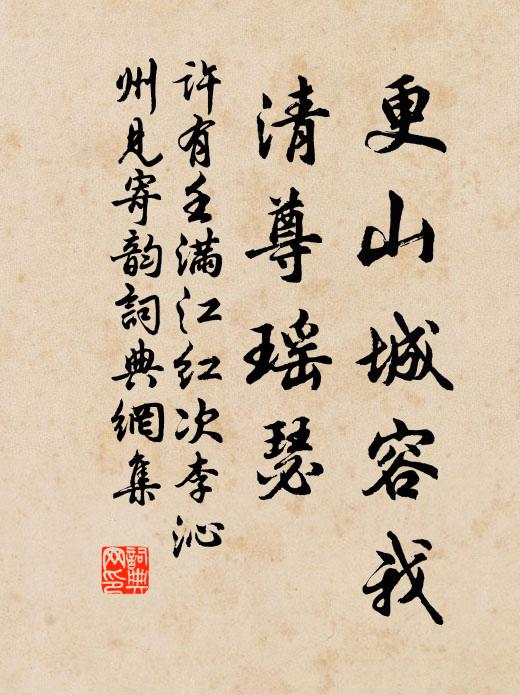 更山城容我
清尊瑶瑟
许有壬满江红次李沁
州见寄韵詞典網集
詞典网印